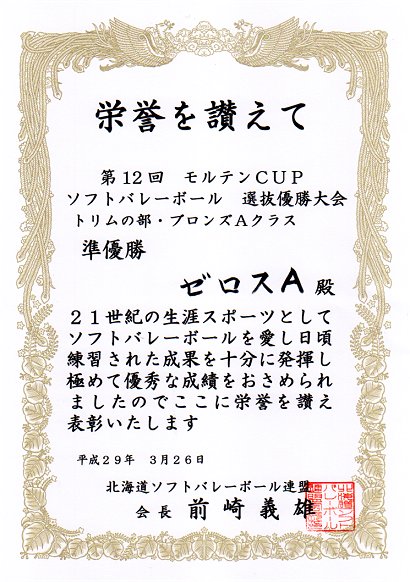 栄誉を讃えて
第12回　モルテンCUP
ソフトバレーボール　選抜優勝大会
トリムの部・ブロンズAクラス
準優勝
ゼロスA 殿
２１世紀の生涯スポーツとして
ソフトバレーボールを愛し日頃
練習された成果を十分に発揮し
極めて優秀な成績をおさめられ
ましたのでここに栄誉を讃え
表彰いたします
平成２９年　３月２６日
北海道ソフトバレーボール連盟
会長　前崎義雄